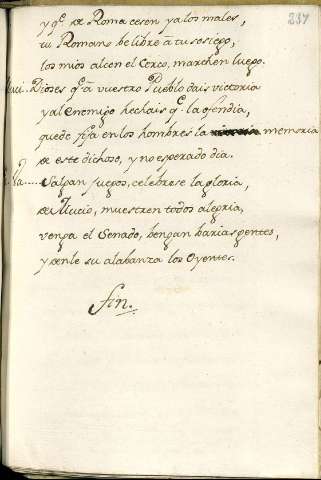 237
y q.e de Roma cesen ya los males,
tu Romano be libre á tu sosiego,
los mios alcen el Cerco, marchen luego.
Luci. Dioses q.e á vuestro Pueblo dais victoria
y al Enemigo hechais q.e la ofendia,
quede fija en los hombres la memoria
de este dichoso, y no esperado dia.
salgan fuegos, celebrese la gloria,
de Mucio, muestren todos alegria,
venga el Senado, bengan barias gentes,
y denle su alabanza los Oyentes.
fin.